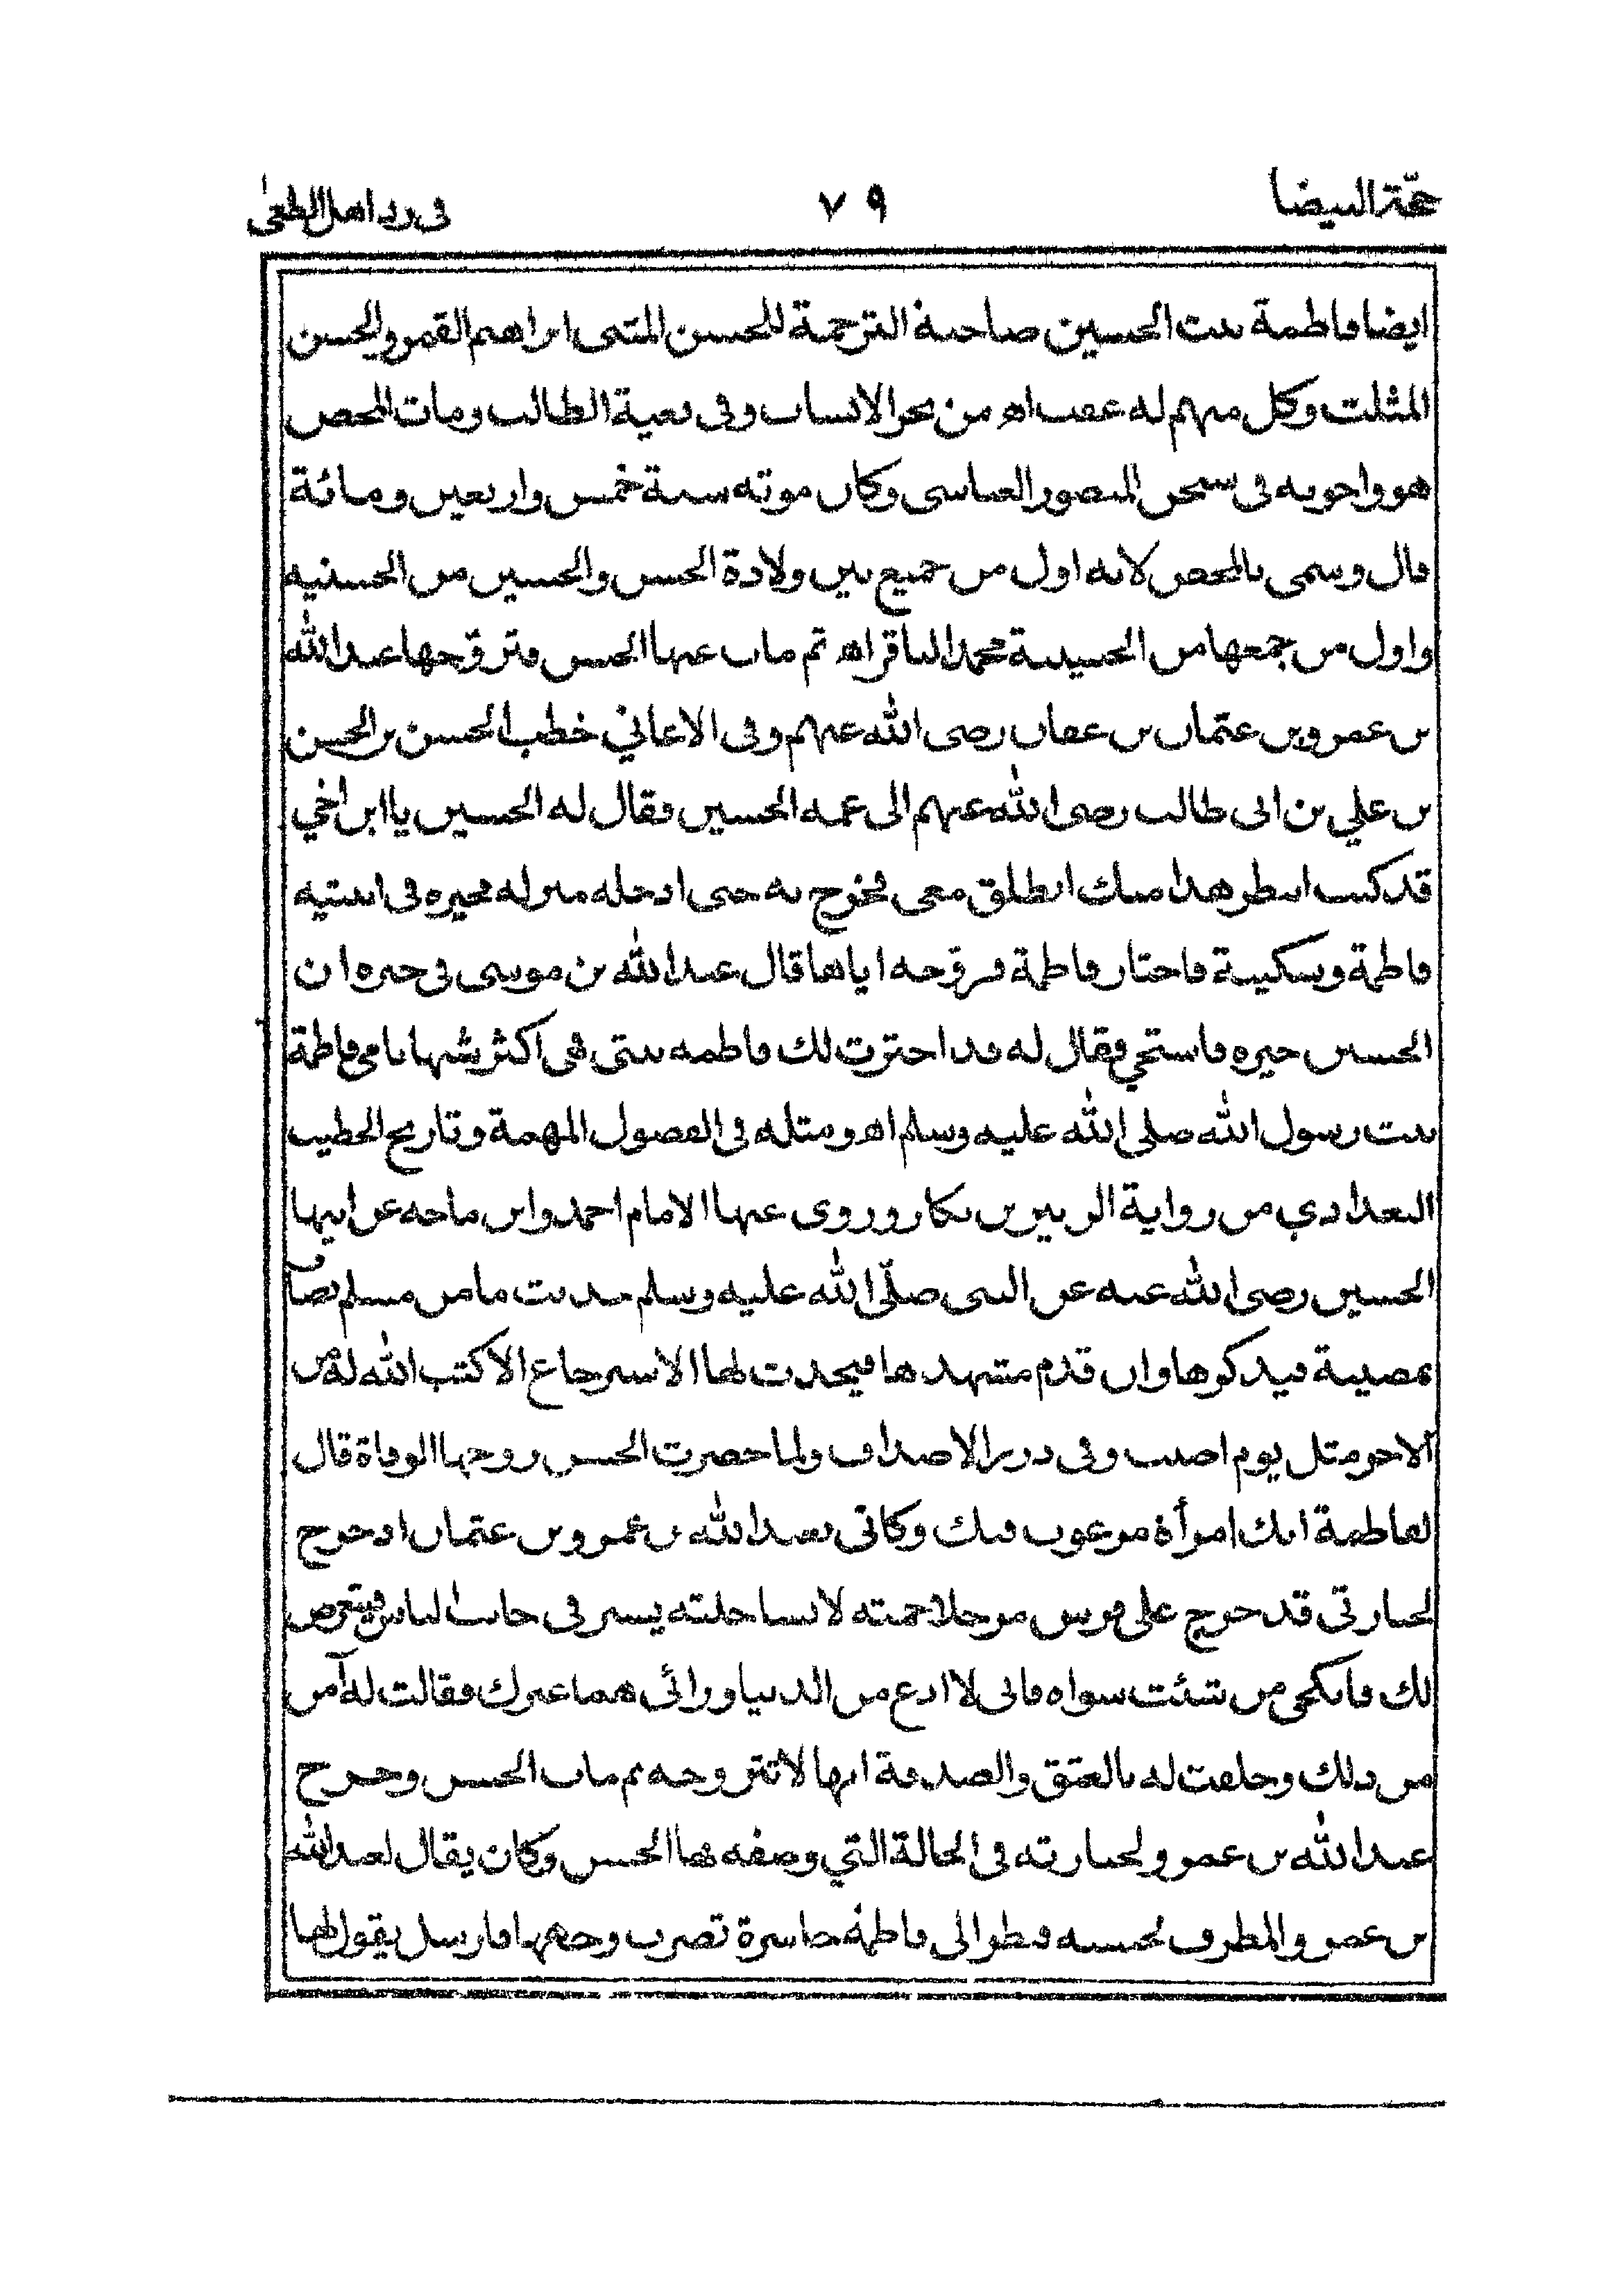 حجة البيضا ٧٩ فى رد اهل الطغى
ايضا فاطمة بنت الحسين صاحبة الترجمة للحسن المثنى ابراهيم القمر والحسن
المثلث وكل منهم له عقب اه من بحر الانساب وفى بغية الطالب ومات المحض
هو واخويه فى سجن المنصور العباسى وكان موته سنة خمس واربعين ومائة
قال وسمى بالمحض لانه اول من جميع بين ولادة الحسن والحسين من الحسنيه
واول من جمعها من الحسينية محمد الباقر اه ثم مات عنها الحسن فتزوجها عبد الله
بن عمرو بن عثمان بن عفان رضى الله عنهم وفى الاغانى خطب الحسن بن الحسن
بن علي بن ابى طالب رضى الله عنهم الى عمه الحسين فقال له الحسين يا ابن اخي
قد كنت انتظر هذا منك انطلق معى فخرج به حتى ادخله منزله فخيره فى ابنتيه
فاطمة وسكينة فاختار فاطمة فزوجه اياها قال عبد الله بن موسى فى خبره ان
الحسين خيره فاستحي فقال له قد اخترت لك فاطمه بنتى فهى اكثر شبها بامي فاطمة
بنت رسول الله صلى الله عليه وسلم اه ومثله فى الفصول المهمة وتاريخ الخطيب
البغدادي من رواية الزبير بن بكار وروى عنها الامام احمد وابن ماجه عن ابيها
الحسين رضى الله عنه عن النبى صلّى الله عليه وسلم حديث ما من مسلم يصاب
بمصيبة فيذكرها وان قدم متشهدها فيحدث لها الاسترجاع الا كتب الله له من
الاجر مثل يوم اصيب وفى درر الاصداف ولما حضرت الحسن زوجها الوفاة قال
لفاطمة انك امرأة مرغوب فيك وكانى بعبد الله بن عمرو بن عثمان اذ خرج
لجنازتى قد خرج على فرس مرجلا جمته لابسا حلته يسير فى جانب الناس فيتعرض
لك فانكحى من شئت سواه فانى لا ادع من الدنيا ورائى هما غيرك فقالت له آمن
من ذلك وحلفت له بالعتق والصدقة انها لا تتزوجه ثم مات الحسن وخرج
عبد الله بن عمرو لجنازته فى الحالة التي وصفه لها الحسن وكان يقال لعبد الله
بن عمرو المطرف لحسنه فنظر الى فاطمة حاسرة تضرب وجهها فارسل يقول لها